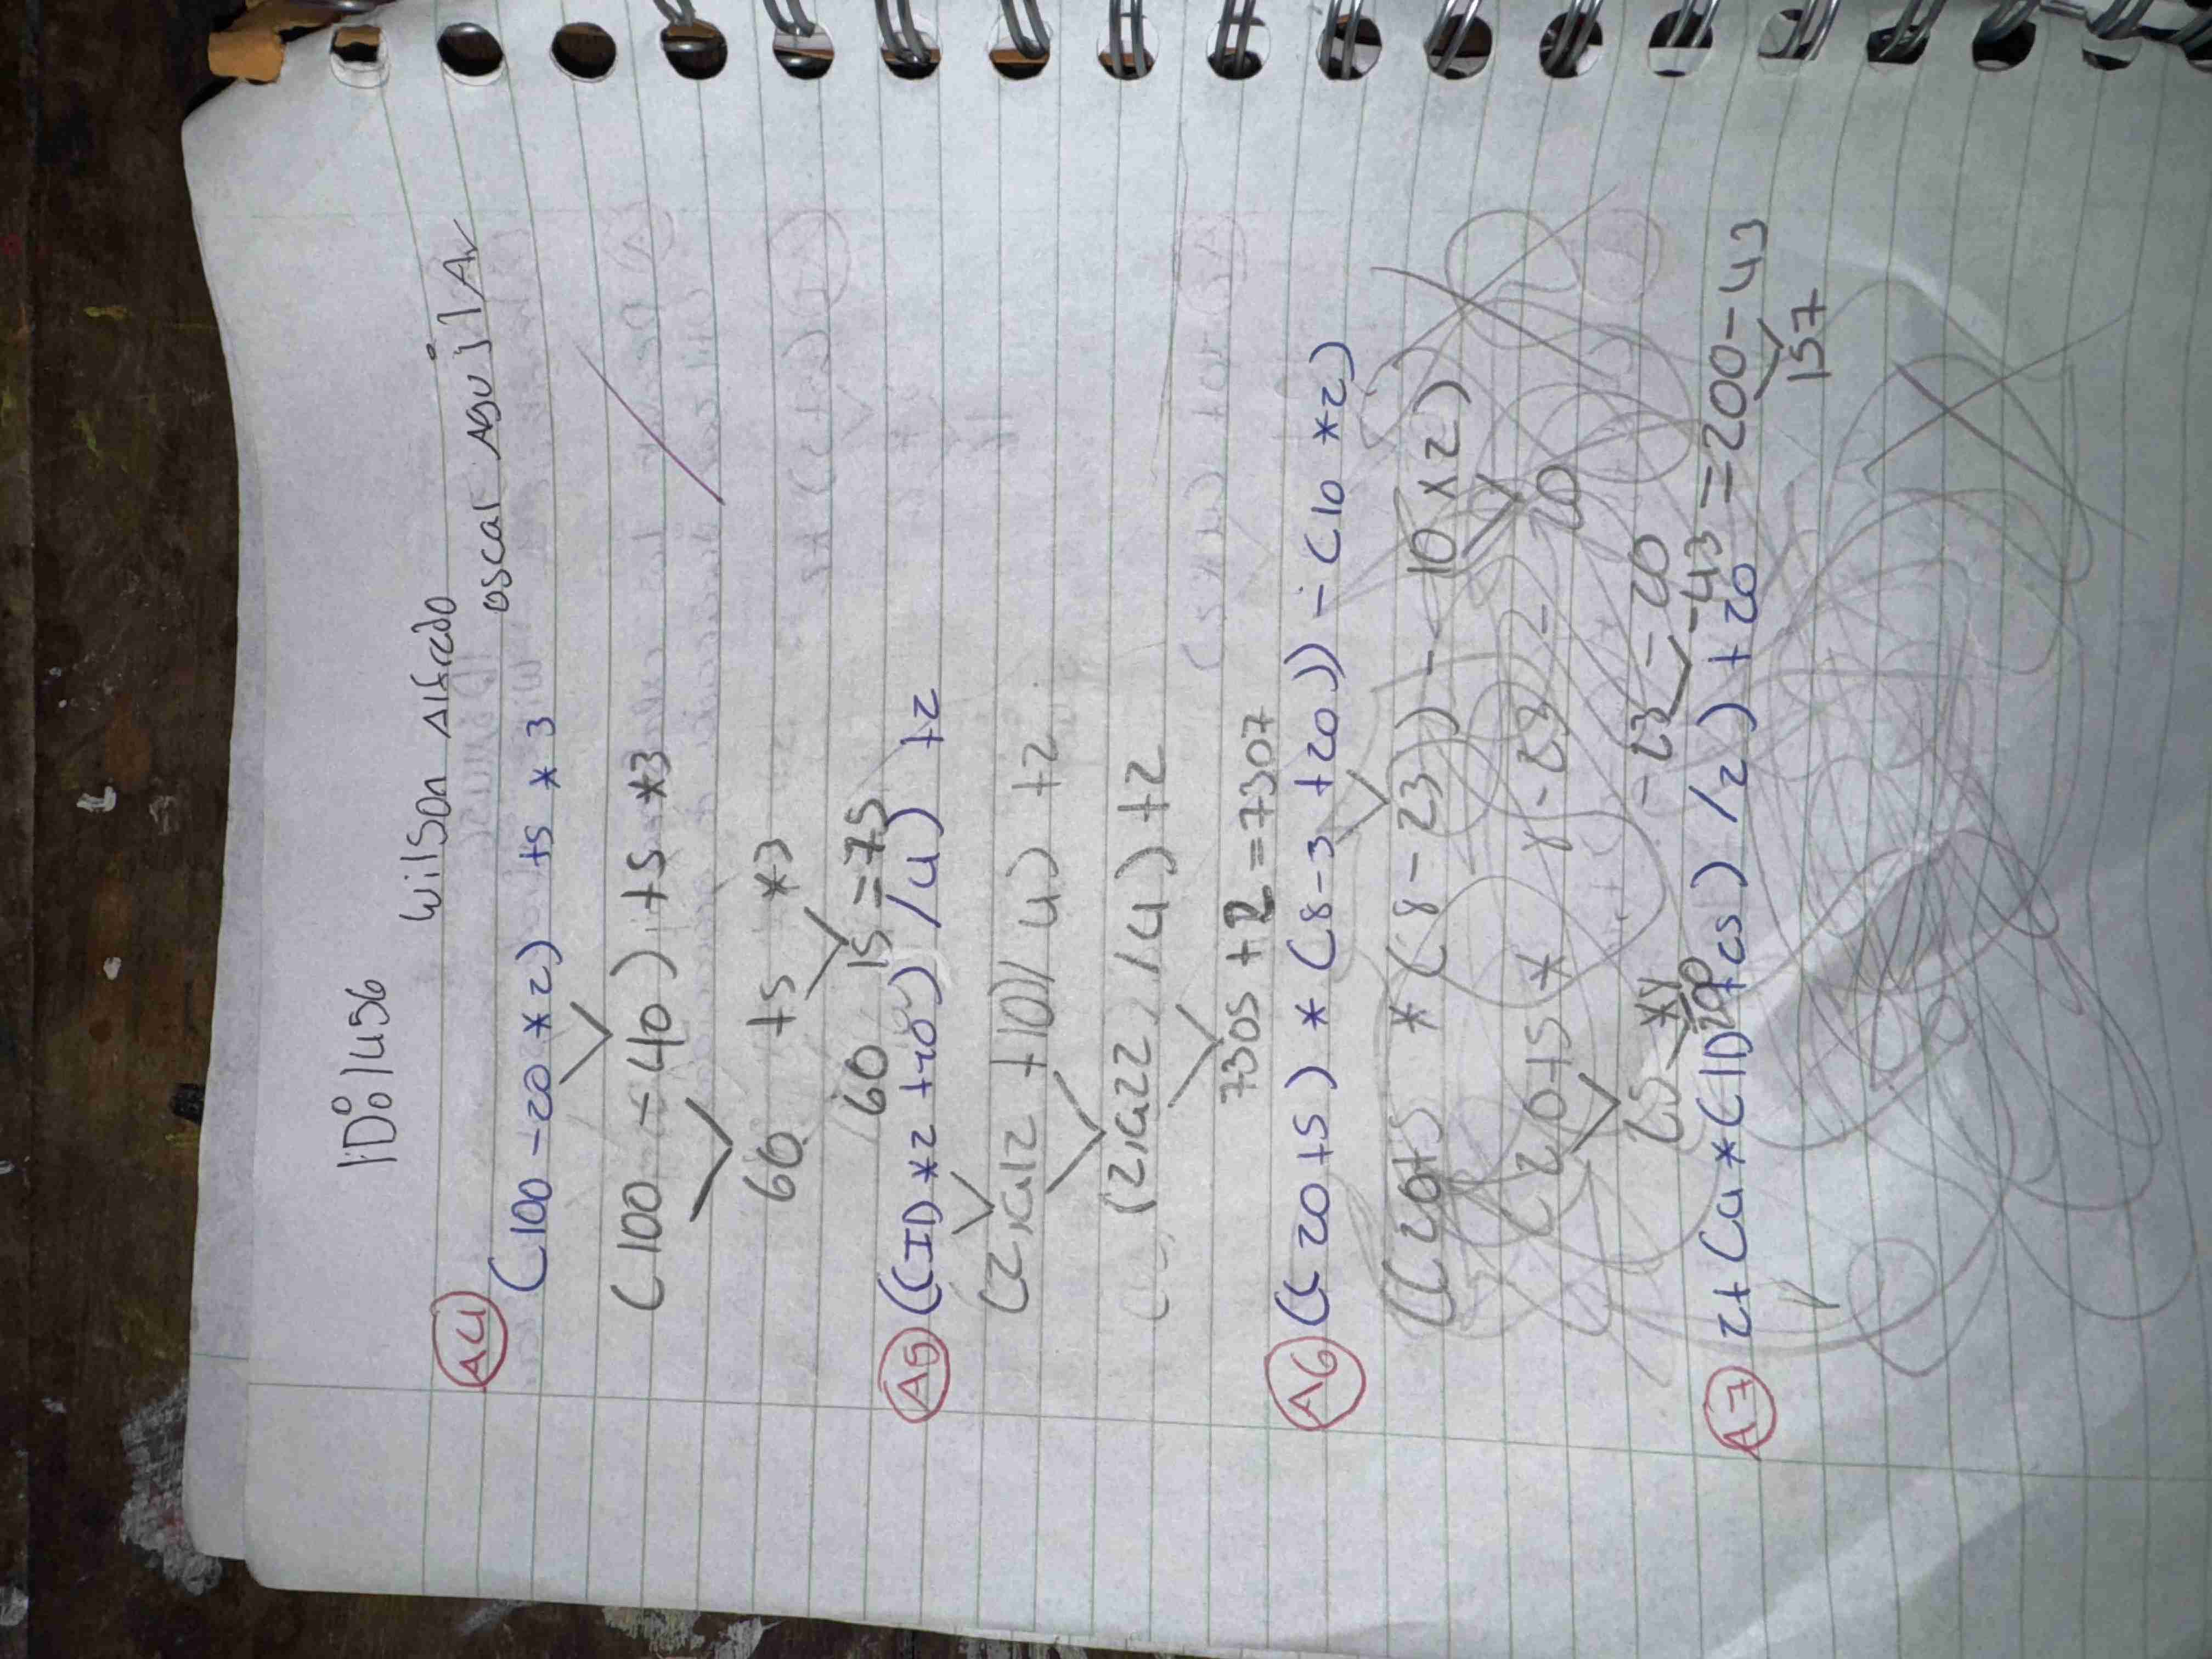 ID:01456
Wilson Alfredo
oscal Aguilar
A4
(100-20*2) +5 *3
(100-40)+5*3
60 +5 *3
60 15=75
A5
((ID*2+10)/4)+2
+10)/4)+2
/4)+2
7305+2=7307
A6
((20+5)*(8-3+20))-(10*2)
((20+5 *(8-23))-10×2)
(20+5* 8-23- 20
25 -23-20
200 -43 =200-43
157
A7
2+(4*(ID+5)/2)+20